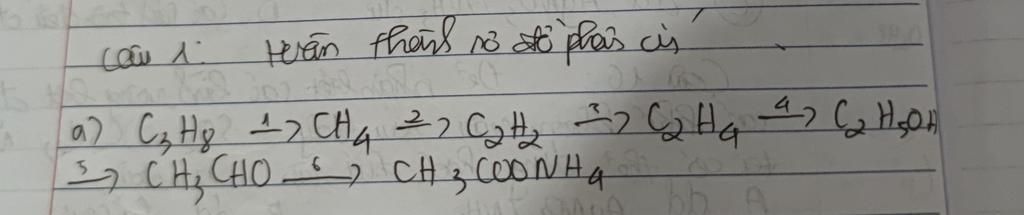 Câu 1: Hoàn thành sơ đồ phản ứng
a) C3H8 1→ CH4 2→ C2H2 3→ C2H4 4→ C2H5OH
5→ CH3CHO 6→ CH3COONH4